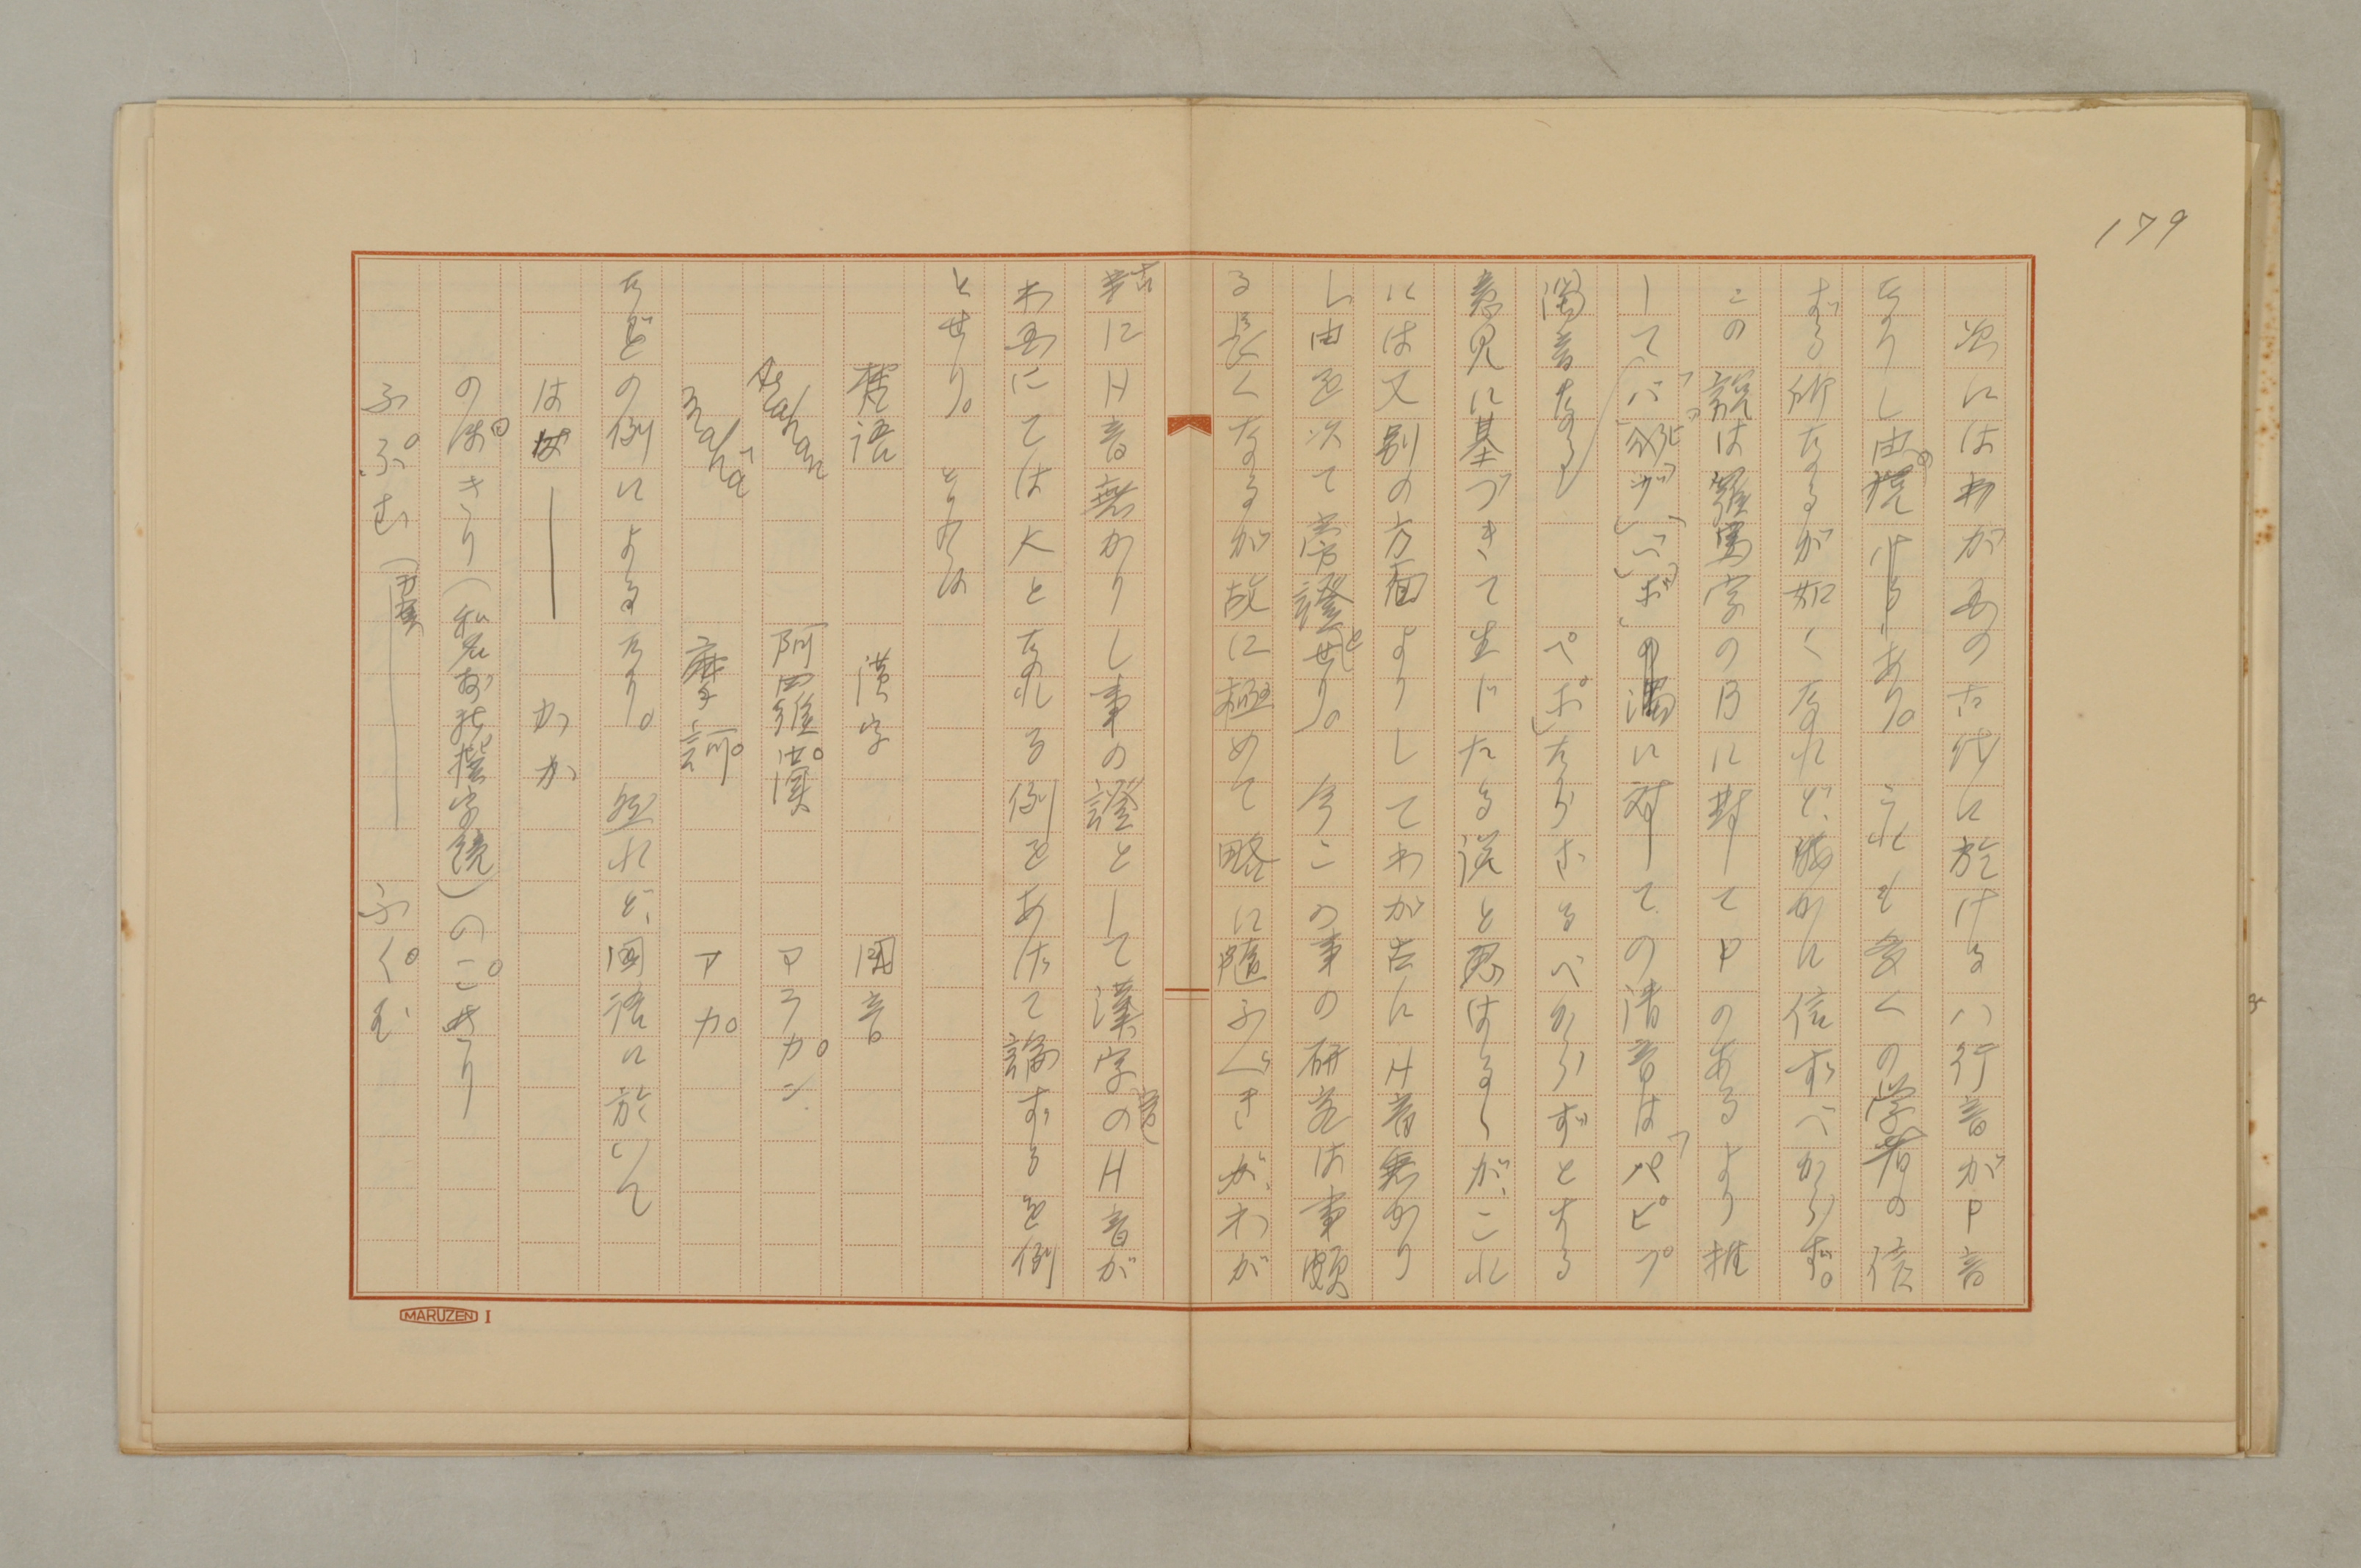 179
次にはわが国の古代に於けるハ行音がP音
なりし由の説あり。これも多くの学者の信
ずる所なるが如くなれど、輙かに信ずべからず。
この説は羅馬字のBに対してPのあるより推
して「バビブベボ」の濁に対しての清音は「パピプ
ペポ」ならざるべからずとする
意見に基づきて生じたる説と思はるゝが、これ
には又別の方面よりしてわが古にH音無かり
し由を以て旁證とせり。今この事の研究は事頗
る長くなるが故に極めて略に随ふべきが、わが
古にH音無かりし事の證として漢字音のH音が
わ国にてはKとなれる例をあげて論ずるを例
とせり。とりわけ
梵語 漢字 国音
Arahan 阿羅漢 アラカン
mahā 摩訶 マカ
などの例によるなり。然れど、国語に於いて
はは かか
のほきり(和名抄新撰字鏡)のこきり
ふふむ ふくむ
MARUZEN I